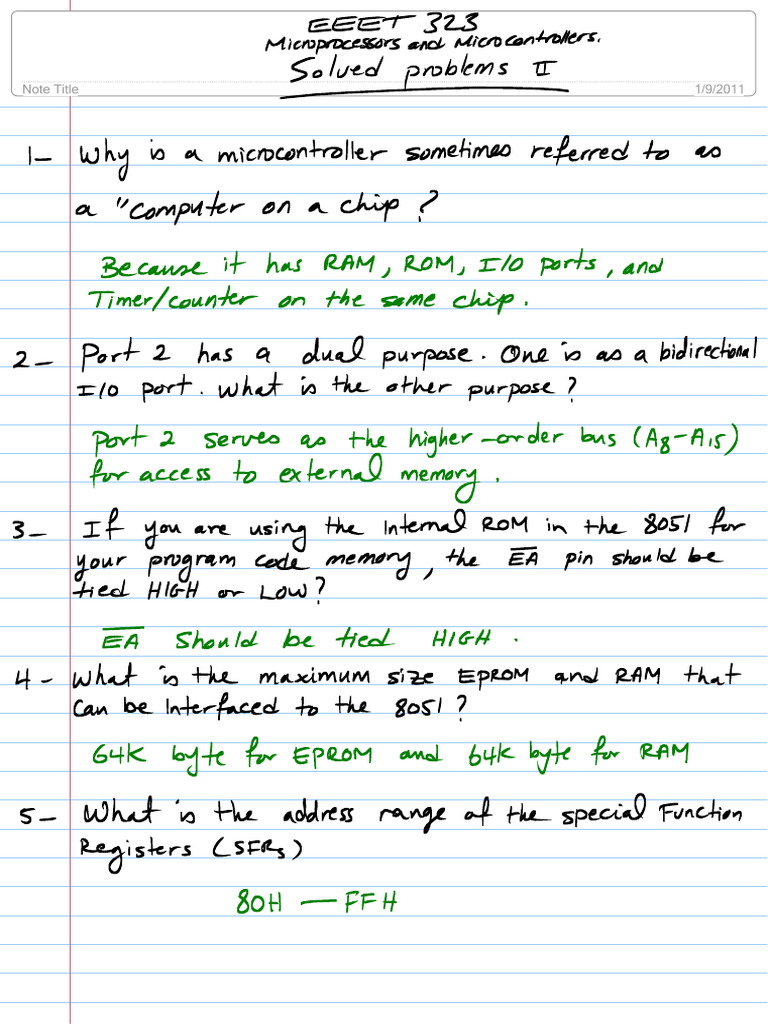 EEET 323
Microprocessors and Microcontrollers.
Solved problems II
Note Title
1/9/2011
1- Why is a microcontroller sometimes referred to as
a "computer on a chip?
Because it has RAM, ROM, I/O ports, and
Timer/counter on the same chip.
2- Port 2 has a dual purpose. One is as a bidirectional
I/O port. What is the other purpose?
Port 2 serves as the higher-order bus (A8-A15)
for access to external memory.
3- If you are using the Internal ROM in the 8051 for
your program code memory, the E̅A̅ pin should be
tied HIGH or LOW?
E̅A̅ should be tied HIGH.
4- What is the maximum size EPROM and RAM that
can be Interfaced to the 8051?
64K byte for EPROM and 64K byte for RAM
5- What is the address range of the special Function
Registers (SFRs)
80H — FFH